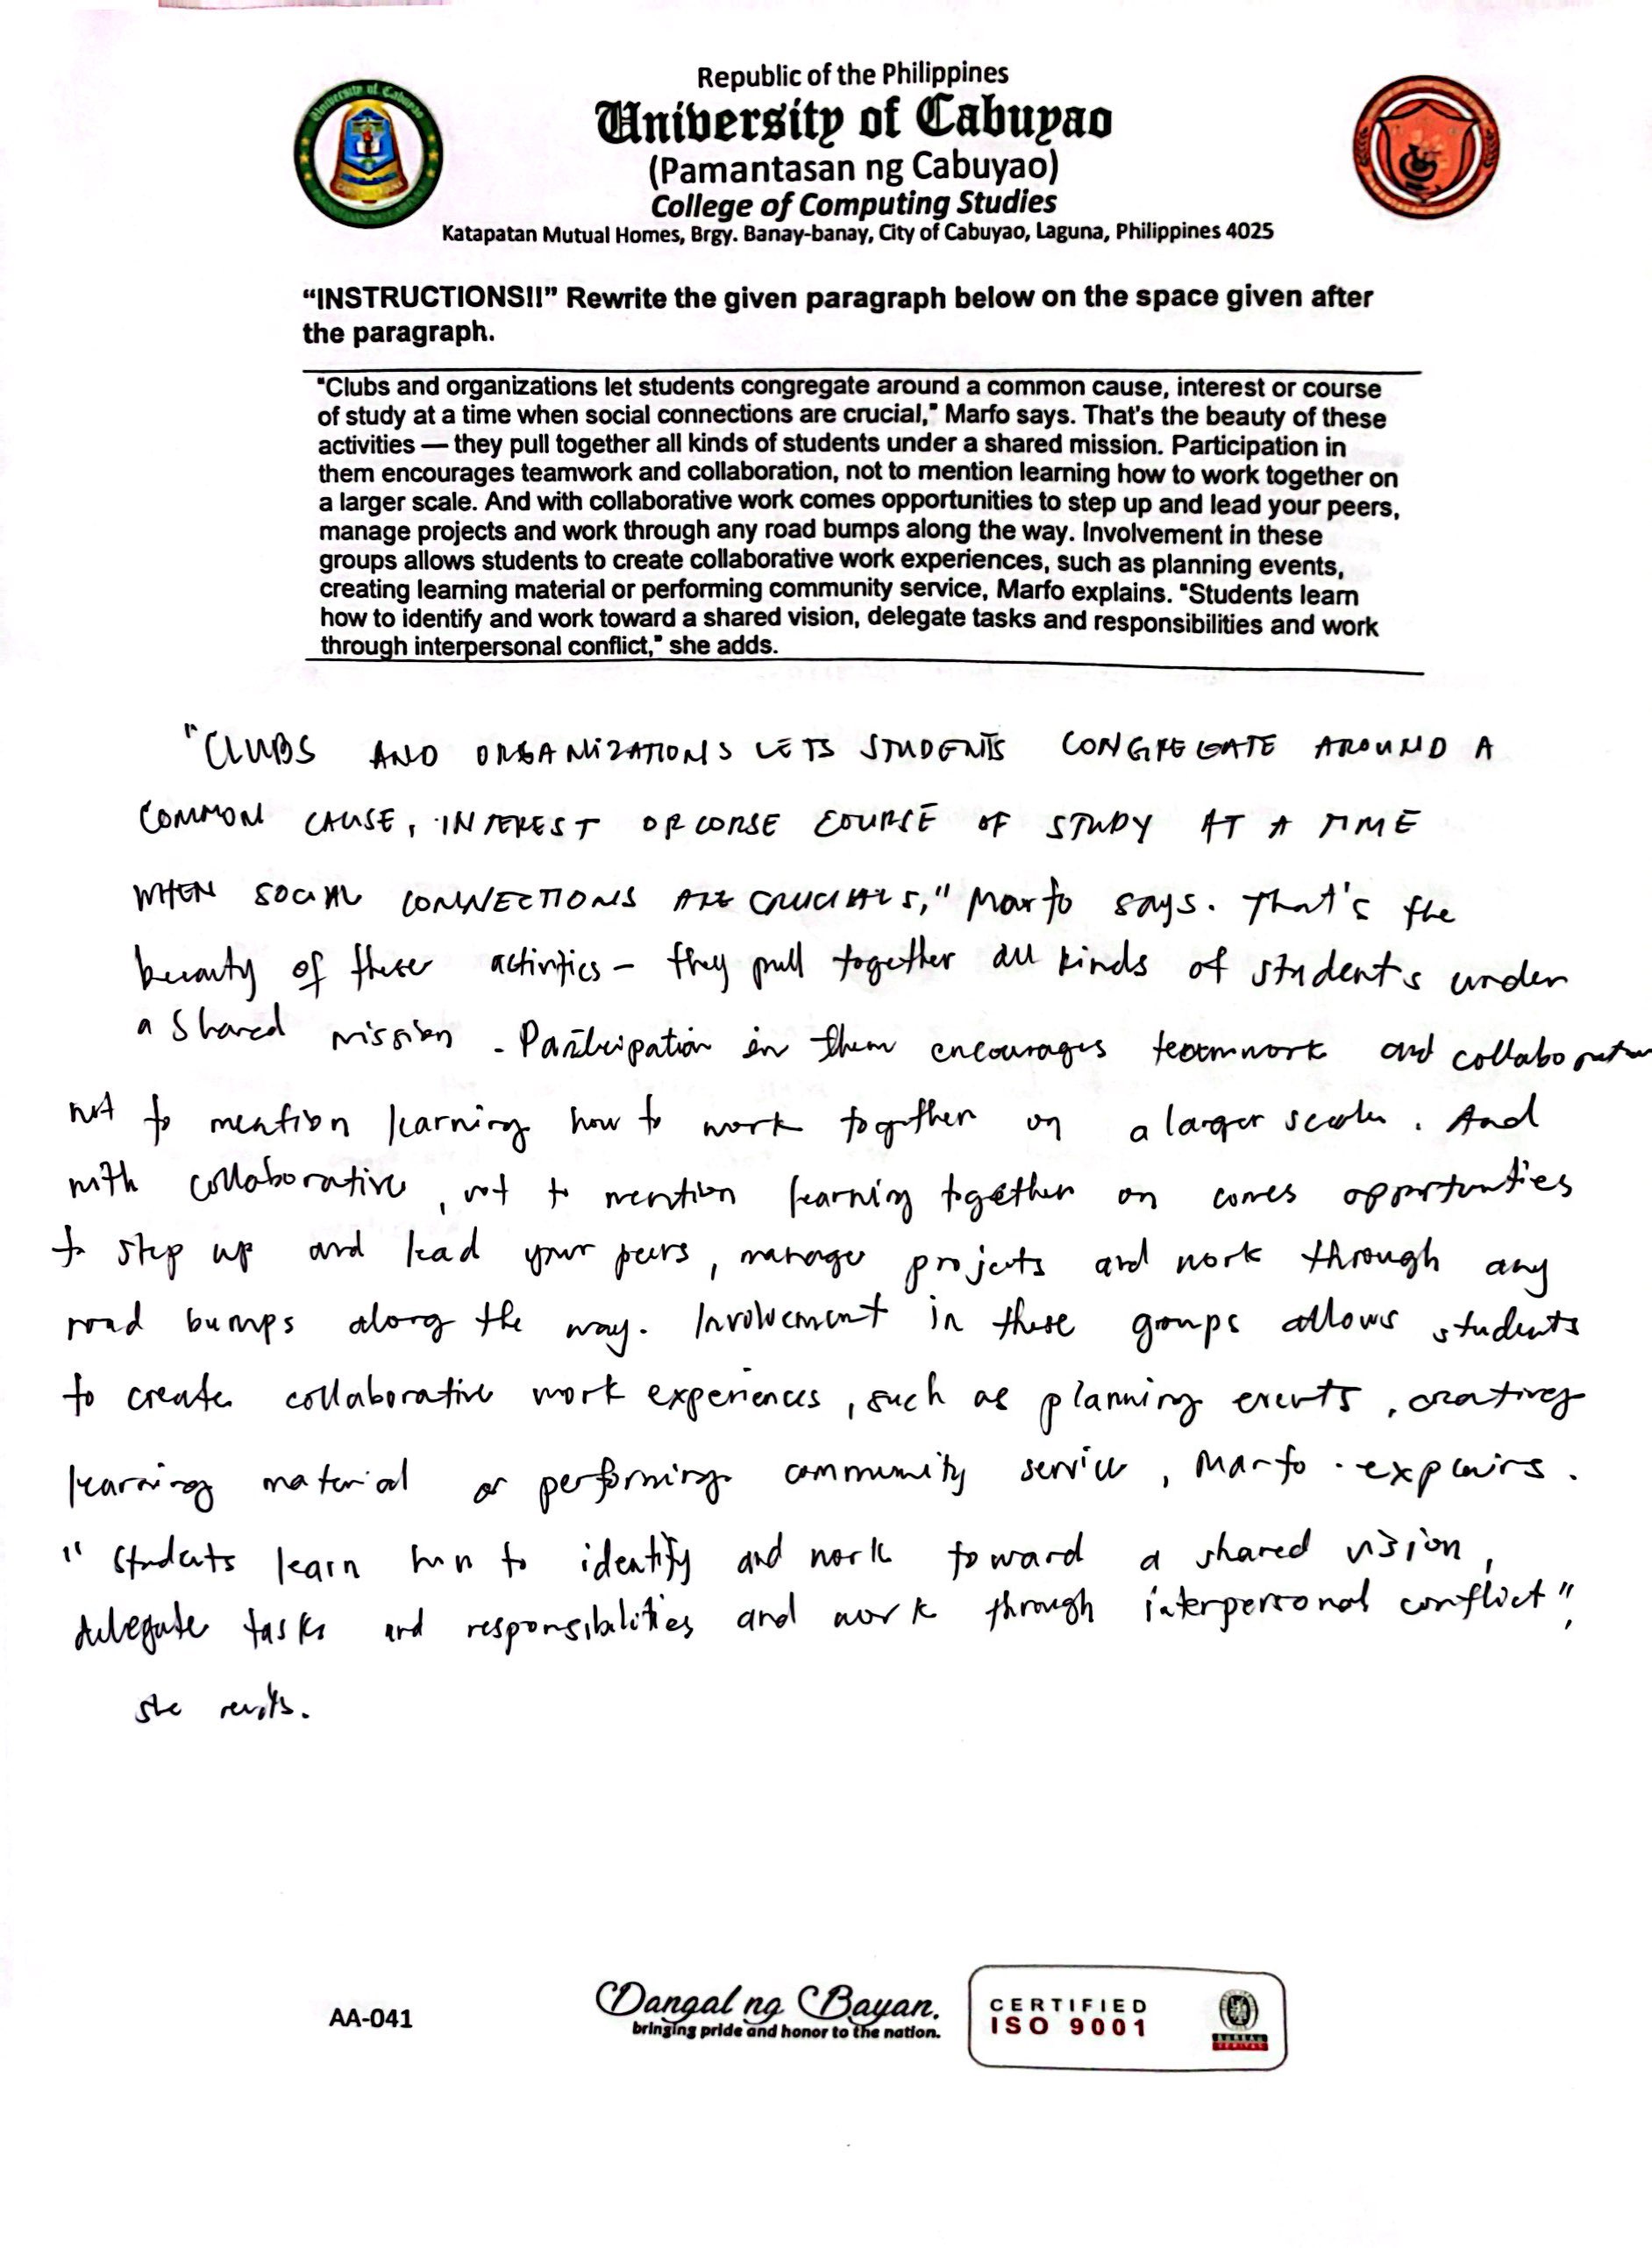 Republic of the Philippines
University of Cabuyao
(Pamantasan ng Cabuyao)
College of Computing Studies
Katapatan Mutual Homes, Brgy. Banay-banay, City of Cabuyao, Laguna, Philippines 4025
“INSTRUCTIONS!!” Rewrite the given paragraph below on the space given after
the paragraph.
"Clubs and organizations let students congregate around a common cause, interest or course
of study at a time when social connections are crucial," Marfo says. That's the beauty of these
activities — they pull together all kinds of students under a shared mission. Participation in
them encourages teamwork and collaboration, not to mention learning how to work together on
a larger scale. And with collaborative work comes opportunities to step up and lead your peers,
manage projects and work through any road bumps along the way. Involvement in these
groups allows students to create collaborative work experiences, such as planning events,
creating learning material or performing community service, Marfo explains. "Students learn
how to identify and work toward a shared vision, delegate tasks and responsibilities and work
through interpersonal conflict," she adds.
"CLUBS AND ORGANIZATIONS LETS STUDENTS CONGREGATE AROUND A
COMMON CAUSE, INTEREST OR CORSE COURSE OF STUDY AT A TIME
WHEN SOCIAL CONNECTIONS ARE CRUCIALS," Marfo says. That's the
beauty of these activities - they pull together all kinds of students under
a shared mission. Participation in them encourages teamwork and
not to mention learning how to work together on a larger scale. And
with collaborative, not to mention learning together on comes opportunities
to step up and lead your peers, manage projects and work through any
road bumps along the way. Involvement in these groups allows students
to create collaborative work experiences, such as planning events, creating
learning material or performing community service, Marfo explains.
"Students learn how to identify and work toward a shared vision,
delegate tasks and responsibilities and work through interpersonal conflict",
she
AA-041
Dangal ng Bayan.
bringing pride and honor to the nation.
CERTIFIED
ISO 9001